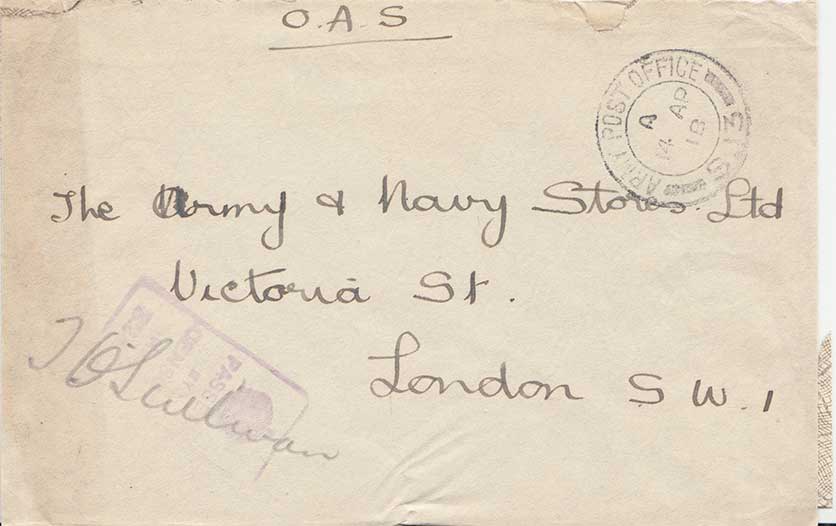 O.A.S
ARMY POST OFFICE
A
14 AP
18
The Army & Navy Stores. Ltd
Victoria St.
London S W. 1
PASSED
BY
CENSOR
J O'Sullivan